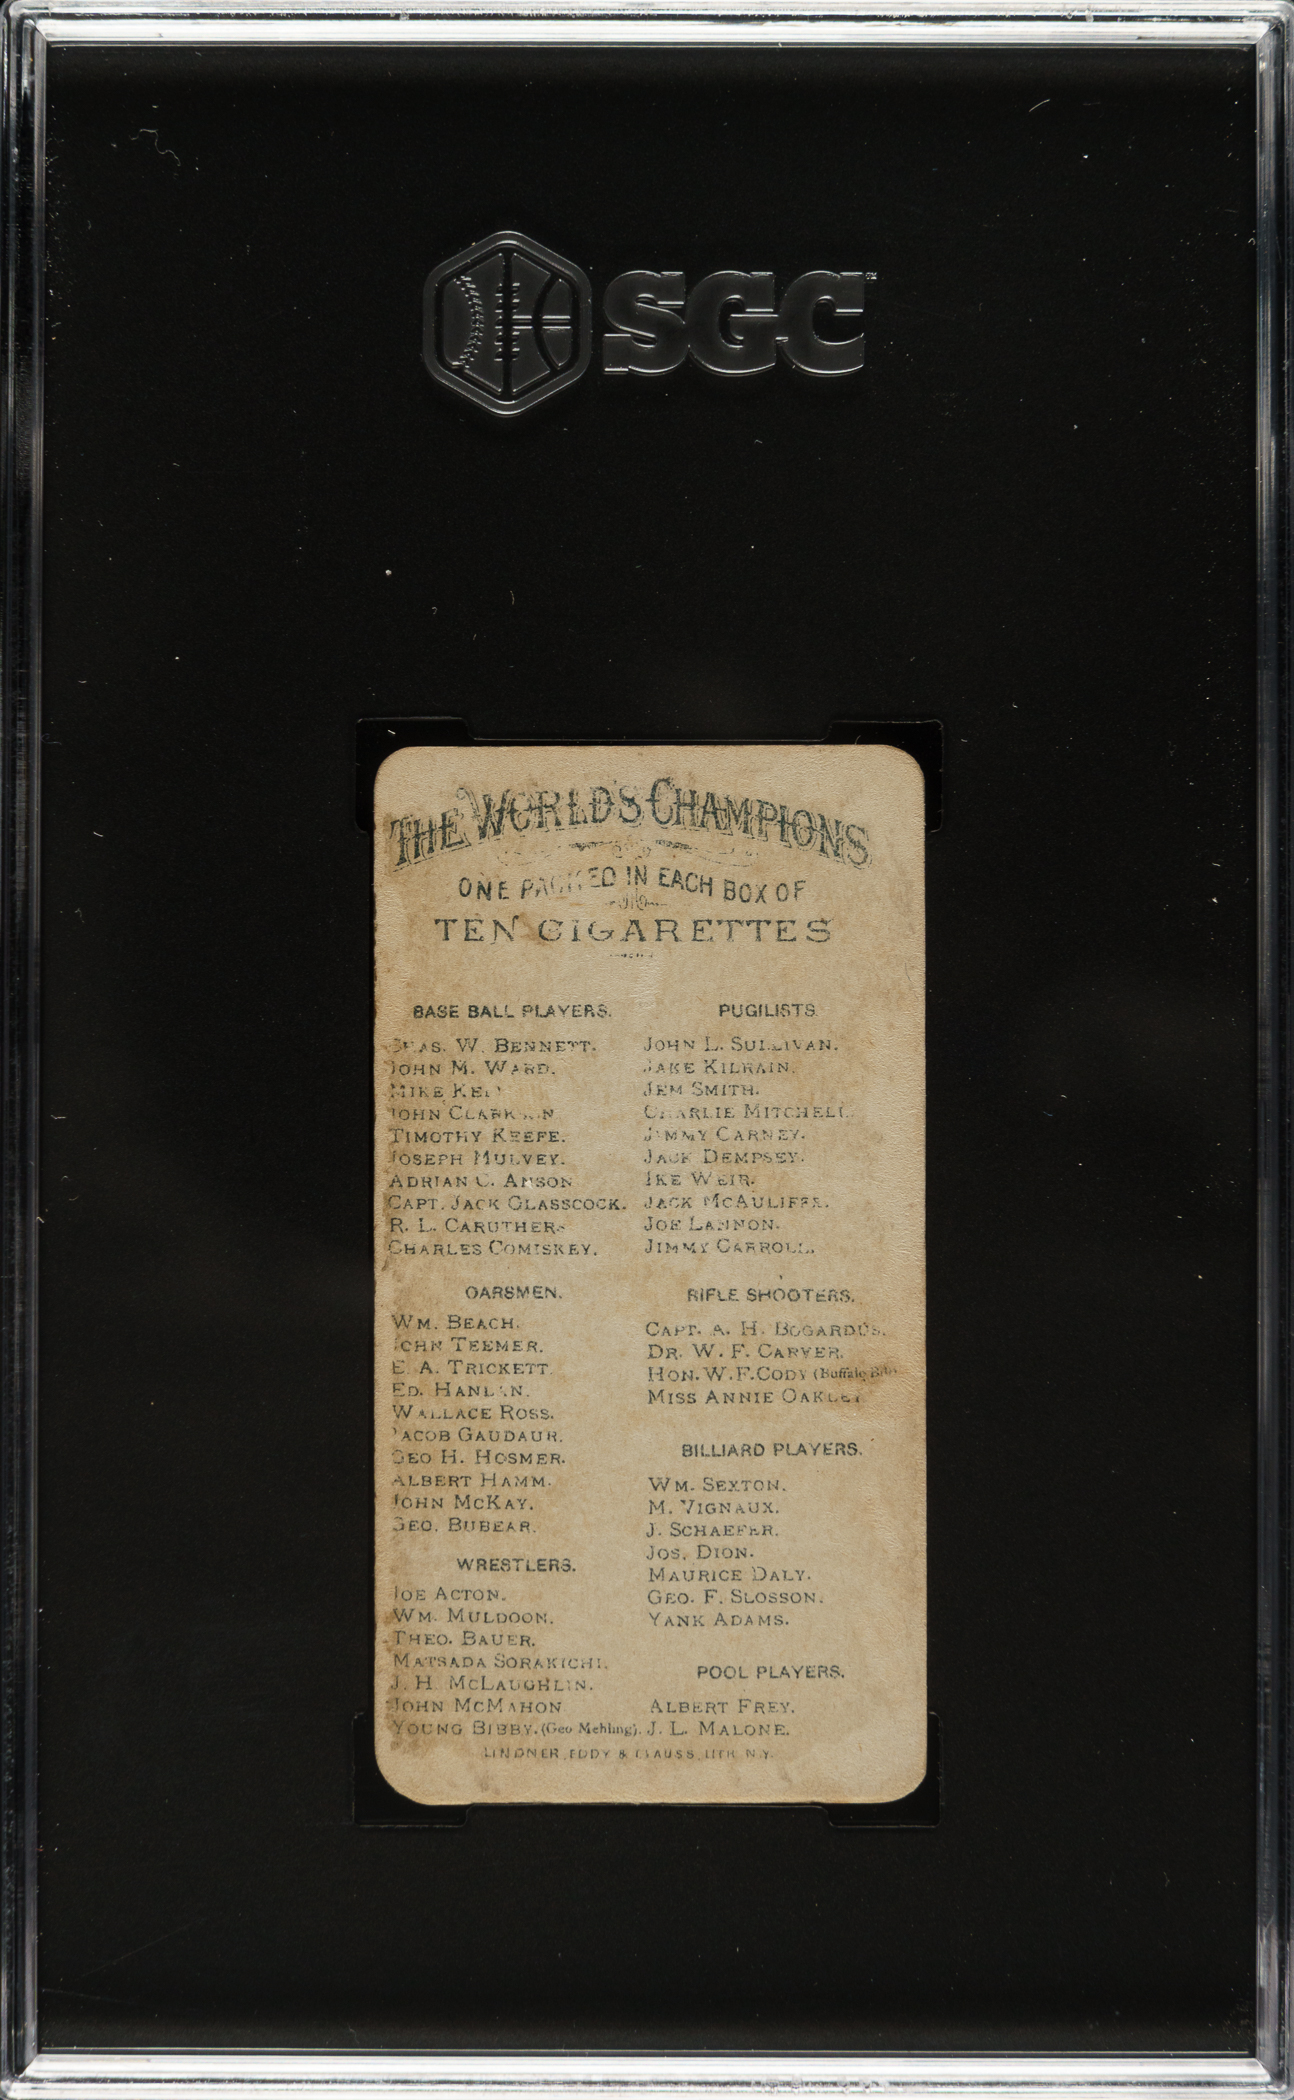 SGC™
THE WORLD'S CHAMPIONS
ONE PACKED IN EACH BOX OF
TEN CIGARETTES
BASE BALL PLAYERS.
CHAS. W. BENNETT.
JOHN M. WARD.
MIKE
JOHN CLARKSON
TIMOTHY KEEFE.
JOSEPH MULVEY.
ADRIAN C. ANSON
CAPT. JACK GLASSCOCK.
R. L. CARUTHERS
CHARLES COMISKEY.
OARSMEN.
WM. BEACH.
JOHN TEEMER.
E. A. TRICKETT.
ED. HANLAN.
WALLACE ROSS.
JACOB GAUDAUR.
GEO H. HOSMER.
ALBERT HAMM.
JOHN MCKAY.
GEO. BUBEAR.
WRESTLERS.
JOE ACTON.
WM. MULDOON.
THEO. BAUER.
MATSADA SORAKICHI.
J. H. MCLAUGHLIN.
JOHN MCMAHON
YOUNG BIBBY. (Geo Mehling).
PUGILISTS.
JOHN L. SULLIVAN.
JAKE KILRAIN.
JEM SMITH.
CHARLIE MITCHELL.
JIMMY CARNEY.
JACK DEMPSEY.
IKE WEIR.
JACK MCAULIFFE.
JOE LANNON.
JIMMY CARROLL.
RIFLE SHOOTERS.
CAPT. A. H. BOGARDUS.
DR. W. F. CARVER.
HON. W. F. CODY (Buffalo Bill)
MISS ANNIE OAKLEY
BILLIARD PLAYERS.
WM. SEXTON.
M. VIGNAUX.
J. SCHAEFER.
JOS. DION.
MAURICE DALY.
GEO. F. SLOSSON.
YANK ADAMS.
POOL PLAYERS.
ALBERT FREY.
J. L. MALONE.
LINDNER, EDDY & CLAUSS, LITH. N.Y.